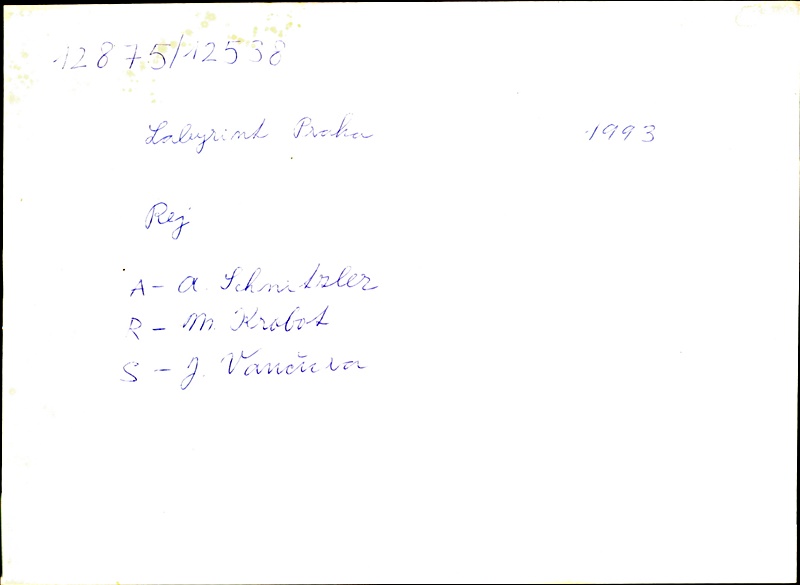 12875/12538
Labyrint Praha 1993
Rej
A - A. Schnitzler
R - M. Krobot
S - J. Vančura